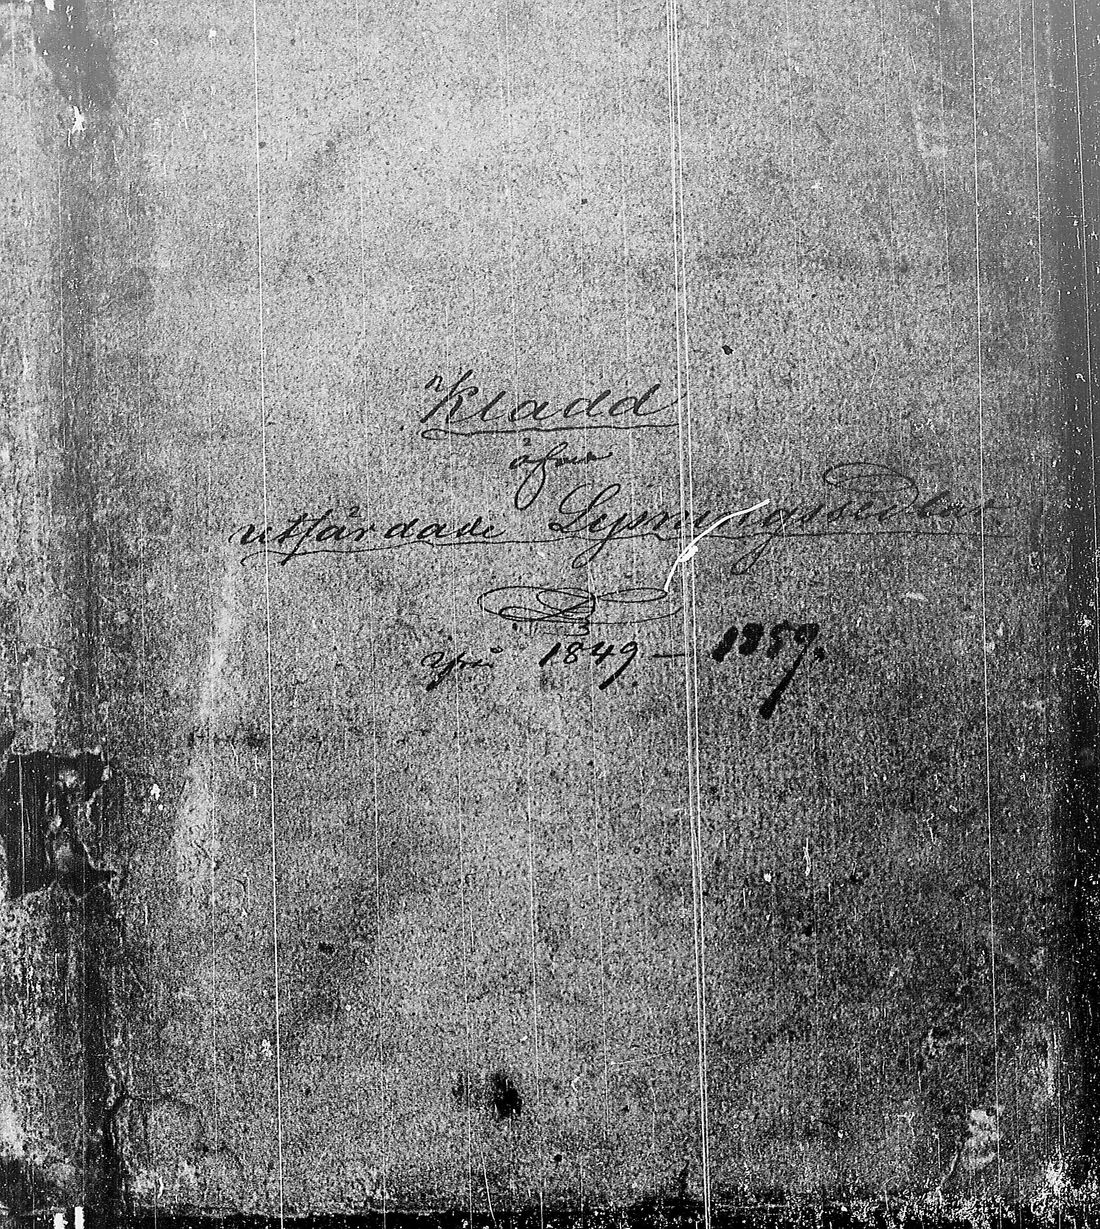 Kladd
öfver
utfärdade Lysningssedlar
från 1849 – 1859.